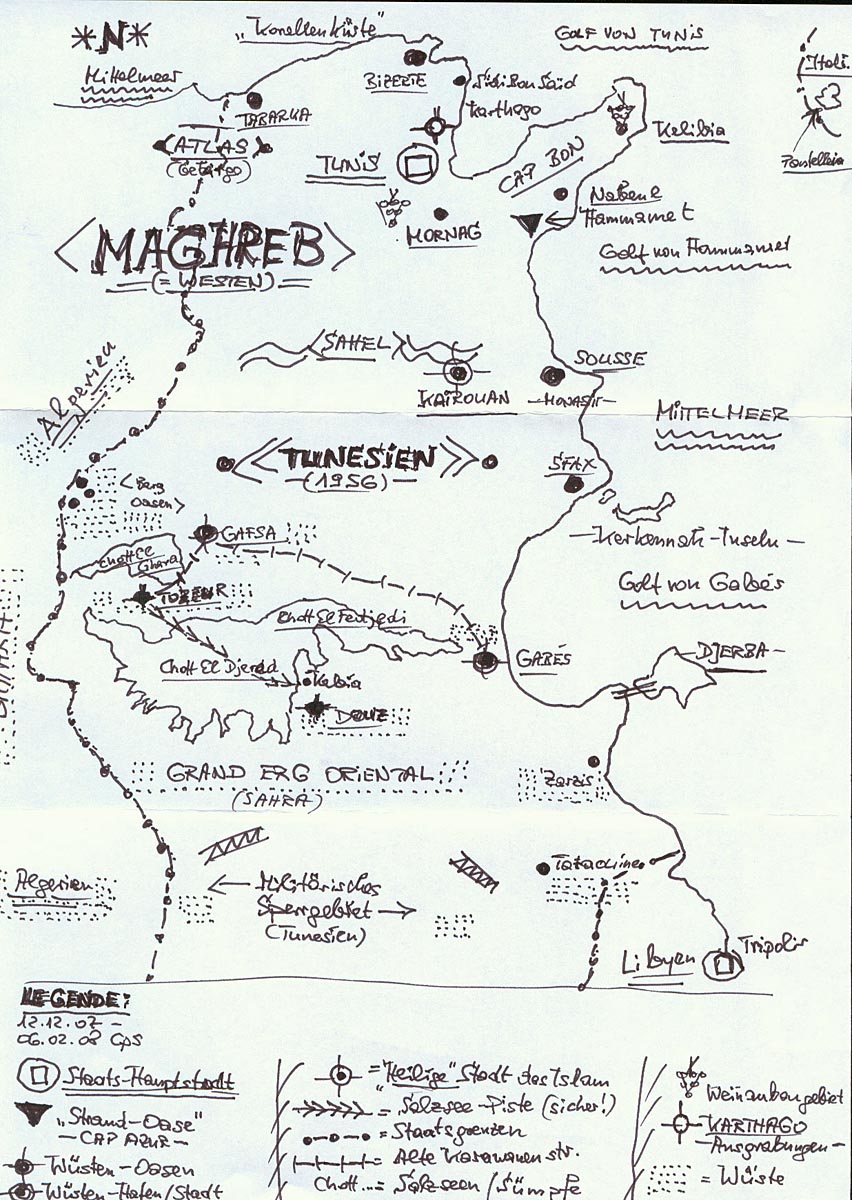 *N*
„Korallenküste"
GOLF VON TUNIS
Mittelmeer
BIZERTE
Sidi Bou Said
Karthago
TABARKA
ATLAS
(Gebirge)
TUNIS
CAP BON
Kelibia
Nabeul
Hammamet
MORNAG
Golf von Hammamet
<MAGHREB>
(= WESTEN)
<SAHEL>
SOUSSE
KAIROUAN
-MONASTIR-
MITTELMEER
Algerien
<<TUNESIEN>>
-(1956)-
SFAX
<Berg
Oasen>
GAFSA
-Kerkennah-Inseln-
Chott El
Gharsa
TOZEUR
Golf von Gabés
Chott El Fedjedj
GABÉS
-DJERBA-
Chott El Djerid
Kebia
DOUZ
GRAND ERG ORIENTAL
(SAHRA)
Zarzis
Algerien
Militärisches
Sperrgebiet
(Tunesien)
Tataouine
Libyen
Tripolis
LEGENDE:
12.12.07 -
06.02.08 GpS
Staats-Hauptstadt
„Strand-Oase"
-CAP AZUR-
Wüsten-Oasen
Wüsten-Hafen/Stadt
= „Heilige" Stadt des Islam
= Salzsee-Piste (sicher!)
= Staatsgrenzen
= Alte Karawanenstr.
Chott...= Salzseen/Sümpfe
Weinanbaugebiet
KARTHAGO
-Ausgrabungen-
= Wüste